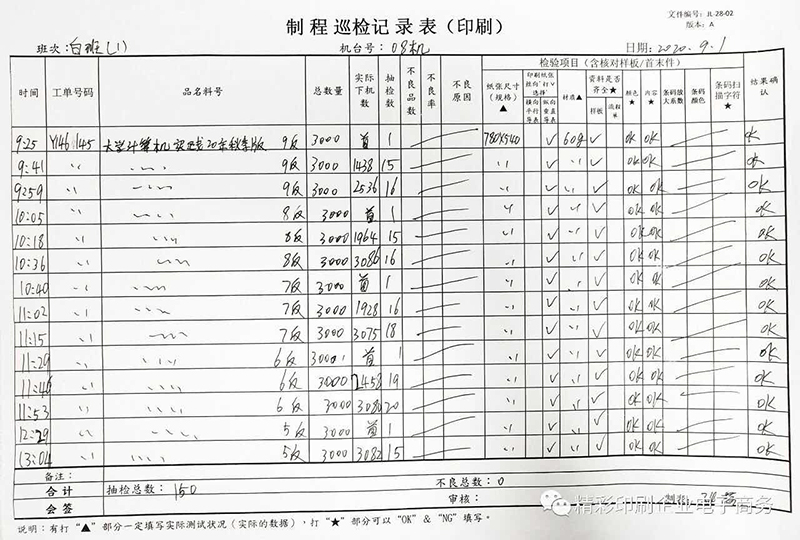 文件编号：JL-28-02
版本：A
制程巡检记录表（印刷）
班次：白班(1) 机台号：08机 日期：2020.9.1
时间 工单号码 品名料号 总数量 实际下机数 抽检数 不良品数 不良率 不良原因 检验项目（含核对样板/首末件） 结果确认
纸张尺寸（规格）▲ 印刷纸张丝向"打√选择" 横向平行导表 纵向垂直导表 材质▲ 资料是否齐全★ 样板 颜色★ 内容★ 条码放大系数 条码颜色 条码扫描字符★
9:25 Y146145 9反 3000 首 1 780X540 √ 60g √ OK OK OK
9:41 〃 〃 9反 3000 1438 15 〃 √ 〃 √ OK OK OK
9:59 〃 〃 9反 3000 2536 16 〃 √ 〃 √ OK OK OK
10:05 〃 〃 8反 3000 首 1 〃 √ 〃 √ OK OK OK
10:18 〃 〃 8反 3000 1964 15 〃 √ 〃 √ OK OK OK
10:36 〃 〃 8反 3000 3086 16 〃 √ 〃 √ OK OK OK
10:40 〃 〃 7反 3000 首 1 〃 √ 〃 √ OK OK OK
11:02 〃 〃 7反 3000 1928 16 〃 √ 〃 √ OK OK OK
11:15 〃 〃 7反 3000 3075 18 〃 √ 〃 √ OK OK OK
11:29 〃 〃 6反 3000 首 1 〃 √ 〃 √ OK OK OK
11:46 〃 〃 6反 3000 2458 19 〃 √ 〃 √ OK OK OK
11:53 〃 〃 6反 3000 3080 20 〃 √ 〃 √ OK OK OK
12:29 〃 〃 5反 3000 首 1 〃 √ 〃 √ OK OK OK
13:04 〃 〃 5反 3000 3082 15 〃 √ 〃 √ OK OK OK
备注：
合计 抽检总数：150 不良总数：0
会签 审核：
精彩印刷企业电子商务
说明：有打"▲"部分一定填写实际测试状况（实际的数据），打"★"部分可以"OK"&"NG"填写。